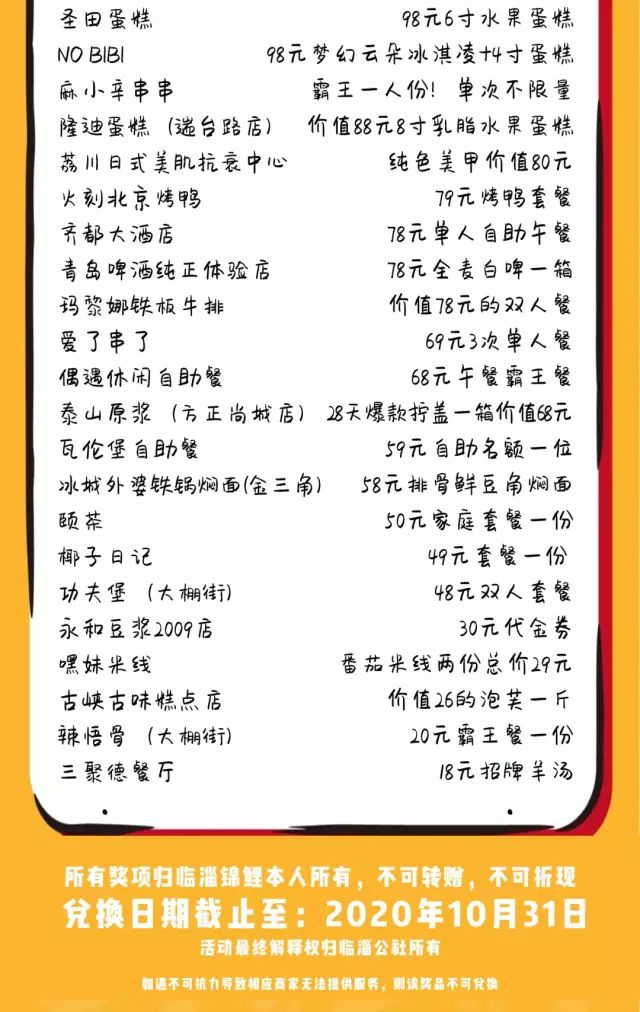 圣田蛋糕 98元6寸水果蛋糕
NO BIBI 98元梦幻云朵冰淇凌+4寸蛋糕
麻小辛串串 霸王一人份！单次不限量
隆迪蛋糕（遄台路店） 价值88元8寸乳脂水果蛋糕
荔川日式美肌抗衰中心 纯色美甲价值80元
火刻北京烤鸭 79元烤鸭套餐
齐都大酒店 78元单人自助午餐
青岛啤酒纯正体验店 78元全麦白啤一箱
玛黎娜铁板牛排 价值78元的双人餐
爱了串了 69元3次单人餐
偶遇休闲自助餐 68元午餐霸王餐
泰山原浆（方正尚城店） 28天爆款拧盖一箱价值68元
瓦伦堡自助餐 59元自助名额一位
冰城外婆铁锅焖面(金三角) 58元排骨鲜豆角焖面
颐茶 50元家庭套餐一份
椰子日记 49元套餐一份
功夫堡（大棚街） 48元双人套餐
永和豆浆2009店 30元代金券
嘿妹米线 番茄米线两份总价29元
古峡古味糕点店 价值26的泡芙一斤
辣悟骨（大棚街） 20元霸王餐一份
三聚德餐厅 18元招牌羊汤
所有奖项归临淄锦鲤本人所有，不可转赠，不可折现
兑换日期截止至：2020年10月31日
活动最终解释权归临淄公社所有
如遇不可抗力导致相应商家无法提供服务，则该奖品不可兑换